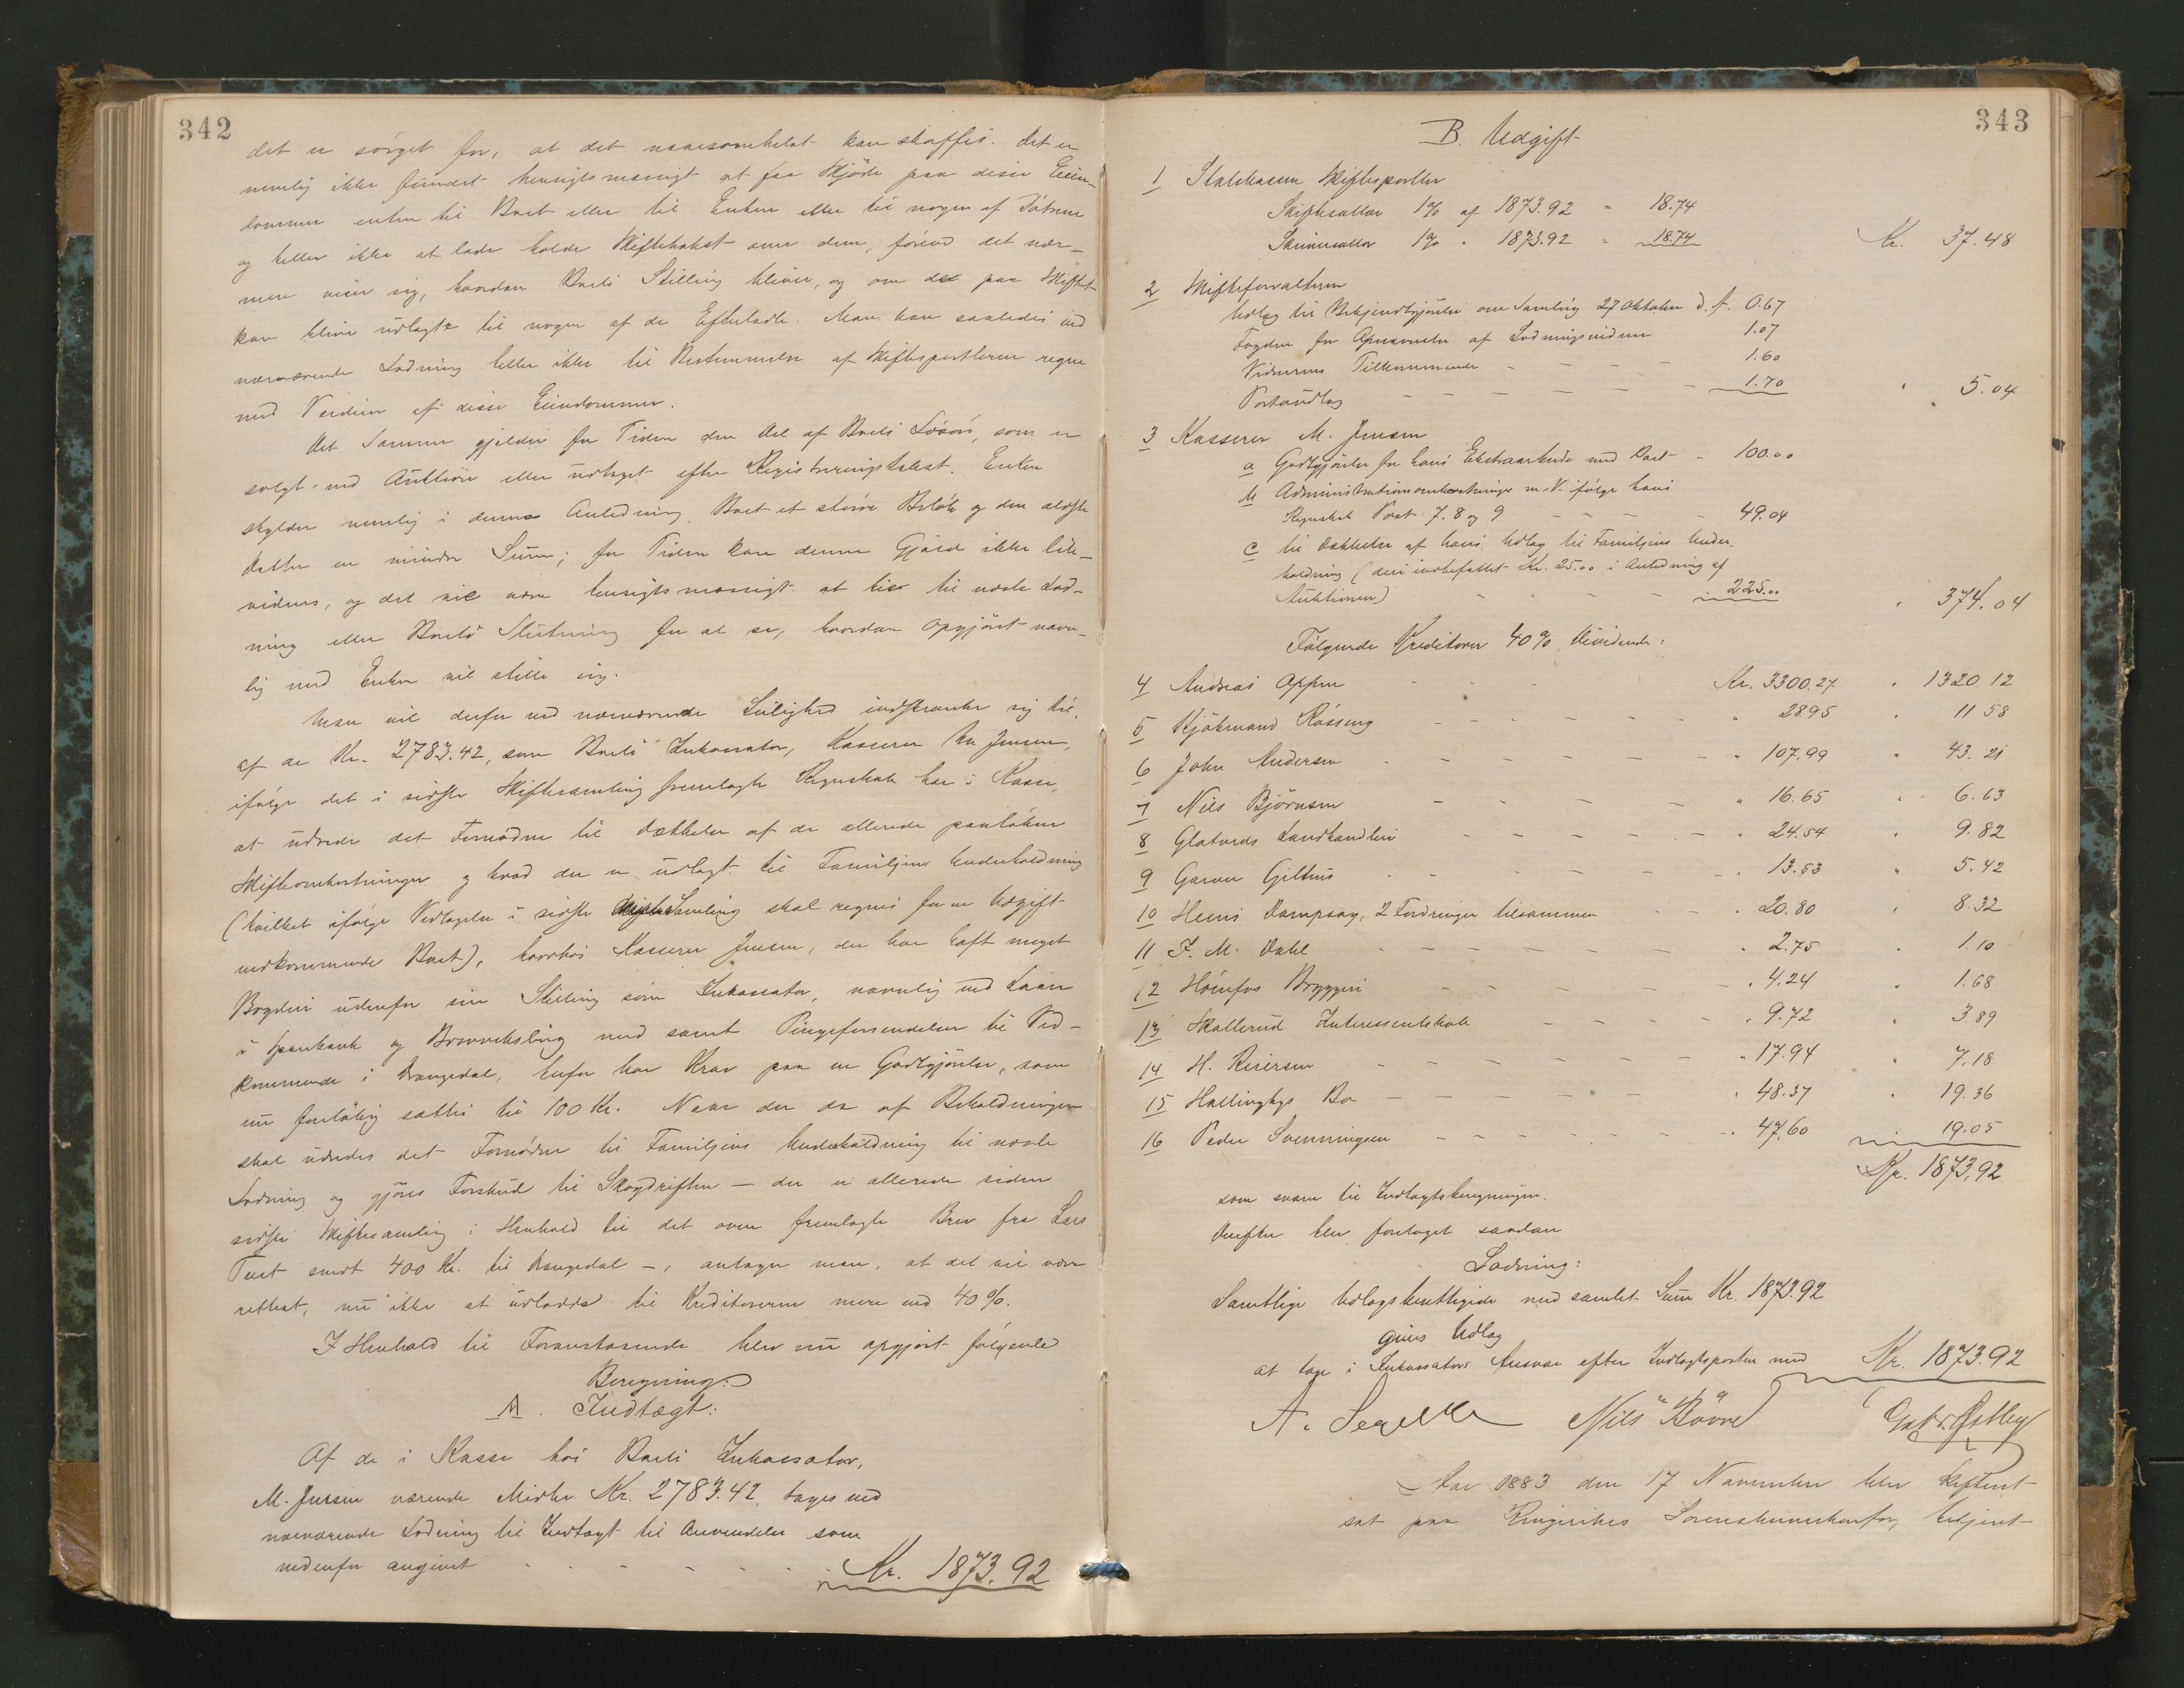 342
det er sørget for, at det naarsomhelst kan skaffes. Det er
nemlig ikke fundet hensigtsmæssigt at faa Skjøde paa disse Eien-
domme enten til Boet eller til Enken eller til nogen af Døtrene
og heller ikke at lade holde Skiftetakst over dem, førend det nær-
mere viser sig, hvordan Boets Stilling bliver, og om de paa Skiftet
kan blive udlagte til nogen af de Efterladte. Man kan saaledes ved
nærværende Lodning heller ikke til Bestemmelse af Skiftesportlerne regne
med Værdien af disse Eiendomme.
Det Samme gjelder for Tiden den Del af Boets Løsøre, som er
solgt ved Auktion eller udtaget efter Registreringstakst. Enken
skylder nemlig i denne Anledning Boet et større Beløb og den ældste
Datter en mindre Sum; for Tiden kan denne Gjæld ikke lik-
videres, og det vil være hensigtsmæssigt at bie til næste Lod-
ning eller Boets Slutning for at se, hvordan Opgjøret navn-
lig med Enken vil stille sig.
Man vil derfor ved nærværende Leilighed indskrænke sig til,
af de Kr. 2783.42, som Boets Inkassator, Kasserer M. Jensen,
ifølge det i sidste Skiftesamling fremlagte Regnskab har i Kasse,
at udrede det Fornødne til Dækkelse af de allerede paaløbne
Skifteomkostninger og hvad der er udlagt til Familjens Underholdning
(hvilket ifølge Vedtagelse i sidste Samling skal regnes for en Udgift
vedkommende Boet), hvorhos Kasserer Jensen, der har haft meget
Bryderi udenfor sin Stilling som Inkassator, navnlig ved Laan
i Sparebank og Brevveksling med samt Pengeforsendelser til Ved-
kommende i Drangedal, herfor har Krav paa en Godtgjørelse, som
nu foreløbig sættes til 100 Kr. Naar der da af Beholdningen
skal udredes det Fornødne til Familjens Underholdning til næste
Lodning og gjøres Forskud til Skogdriften – der er allerede siden
sidste Skiftesamling i Henhold til det oven fremlagte Brev fra Lars
Tveit sendt 400 Kr. til Drangedal –, antager man, at det vil være
rettest, nu ikke at udlodde til Kreditorerne mere end 40 %.
I Henhold til Foranstaaende blev nu opgjort følgende
Beregning:
A. Indtægt:
Af de i Kasse hos Boets Inkassator,
M. Jensen værende Midler Kr. 2783.42, tages ved
nærværende Lodning til Indtægt til Anvendelse som
nedenfor angivet - - - - - Kr. 1873.92
343
B. Udgift
1 Statskassen Skiftesportler
Skiftesallær 1 % af 1873.92 = 18.74
Skriversallær 1 % " 1873.92 = 18.74 Kr. 37.48
2 Skifteforvalteren
Udlag til Bekjendtgjørelse om Samling 27 Oktober d. A. 0.67
Fogden for Opnævnelse af Lodningsvidner 1.07
Vidnernes Tilkommende - - - 1.60
Portoudlag - - - - 1.70 " 5.04
3 Kasserer M. Jensen
a Godtgjørelse for hans Ekstraarbeide med Boet - 100.00
b Administrationsomkostninger m. V. ifølge hans
Regnskab Post 7. 8 og 9 - - - 49.04
c til Dækkelse af hans Udlag til Familjens Under-
holdning (deri indbefattet Kr. 25.00 i Anledning af
Auktionen) - - - - 225.00 " 374.04
Følgende Kreditorer 40 % Dividende:
4 Andreas Oppen - - - Kr. 3300.27 " 1320.12
5 Skjøkmand Røsseng - - - " 28.95 " 11 58
6 John Andersen - - - " 107.99 " 43. 21
7 Nils Bjørnsen - - - " 16.65 " 6.63
8 Glatveds Landhandleri - - - " 24.54 " 9.82
9 Garver Gilhus - - - " 13.53 " 5.42
10 Heens Dampsag, 2 Fordringer tilsammen - - " 20.80 " 8.32
11 F. M. Dahl - - - " 2.75 " 1.10
12 Hønefos Bryggeri - - - " 4.24 " 1.68
13 Skollerud Interessentskab - - - " 9.72 " 3.89
14 H. Reiersen - - - " 17.94 " 7.18
15 Hallingbys Bo - - - " 48.37 " 19.36
16 Peder Svenningsen - - - " 47.60 " 19.05
Kr. 1873.92
som svarer til Indtægtsberegningen.
Derefter blev foretaget saadan
Lodning:
Samtlige Udlagsberettigede med samlet Sum Kr. 1873.92
gives Udlag
at tage i Inkassators Ansvar efter Indtægtsposten med Kr. 1873.92
Nils Bøvre
Aar 1883 den 17 November blev Skifteret
sat paa Ringerikes Sorenskriverkontor, betjent